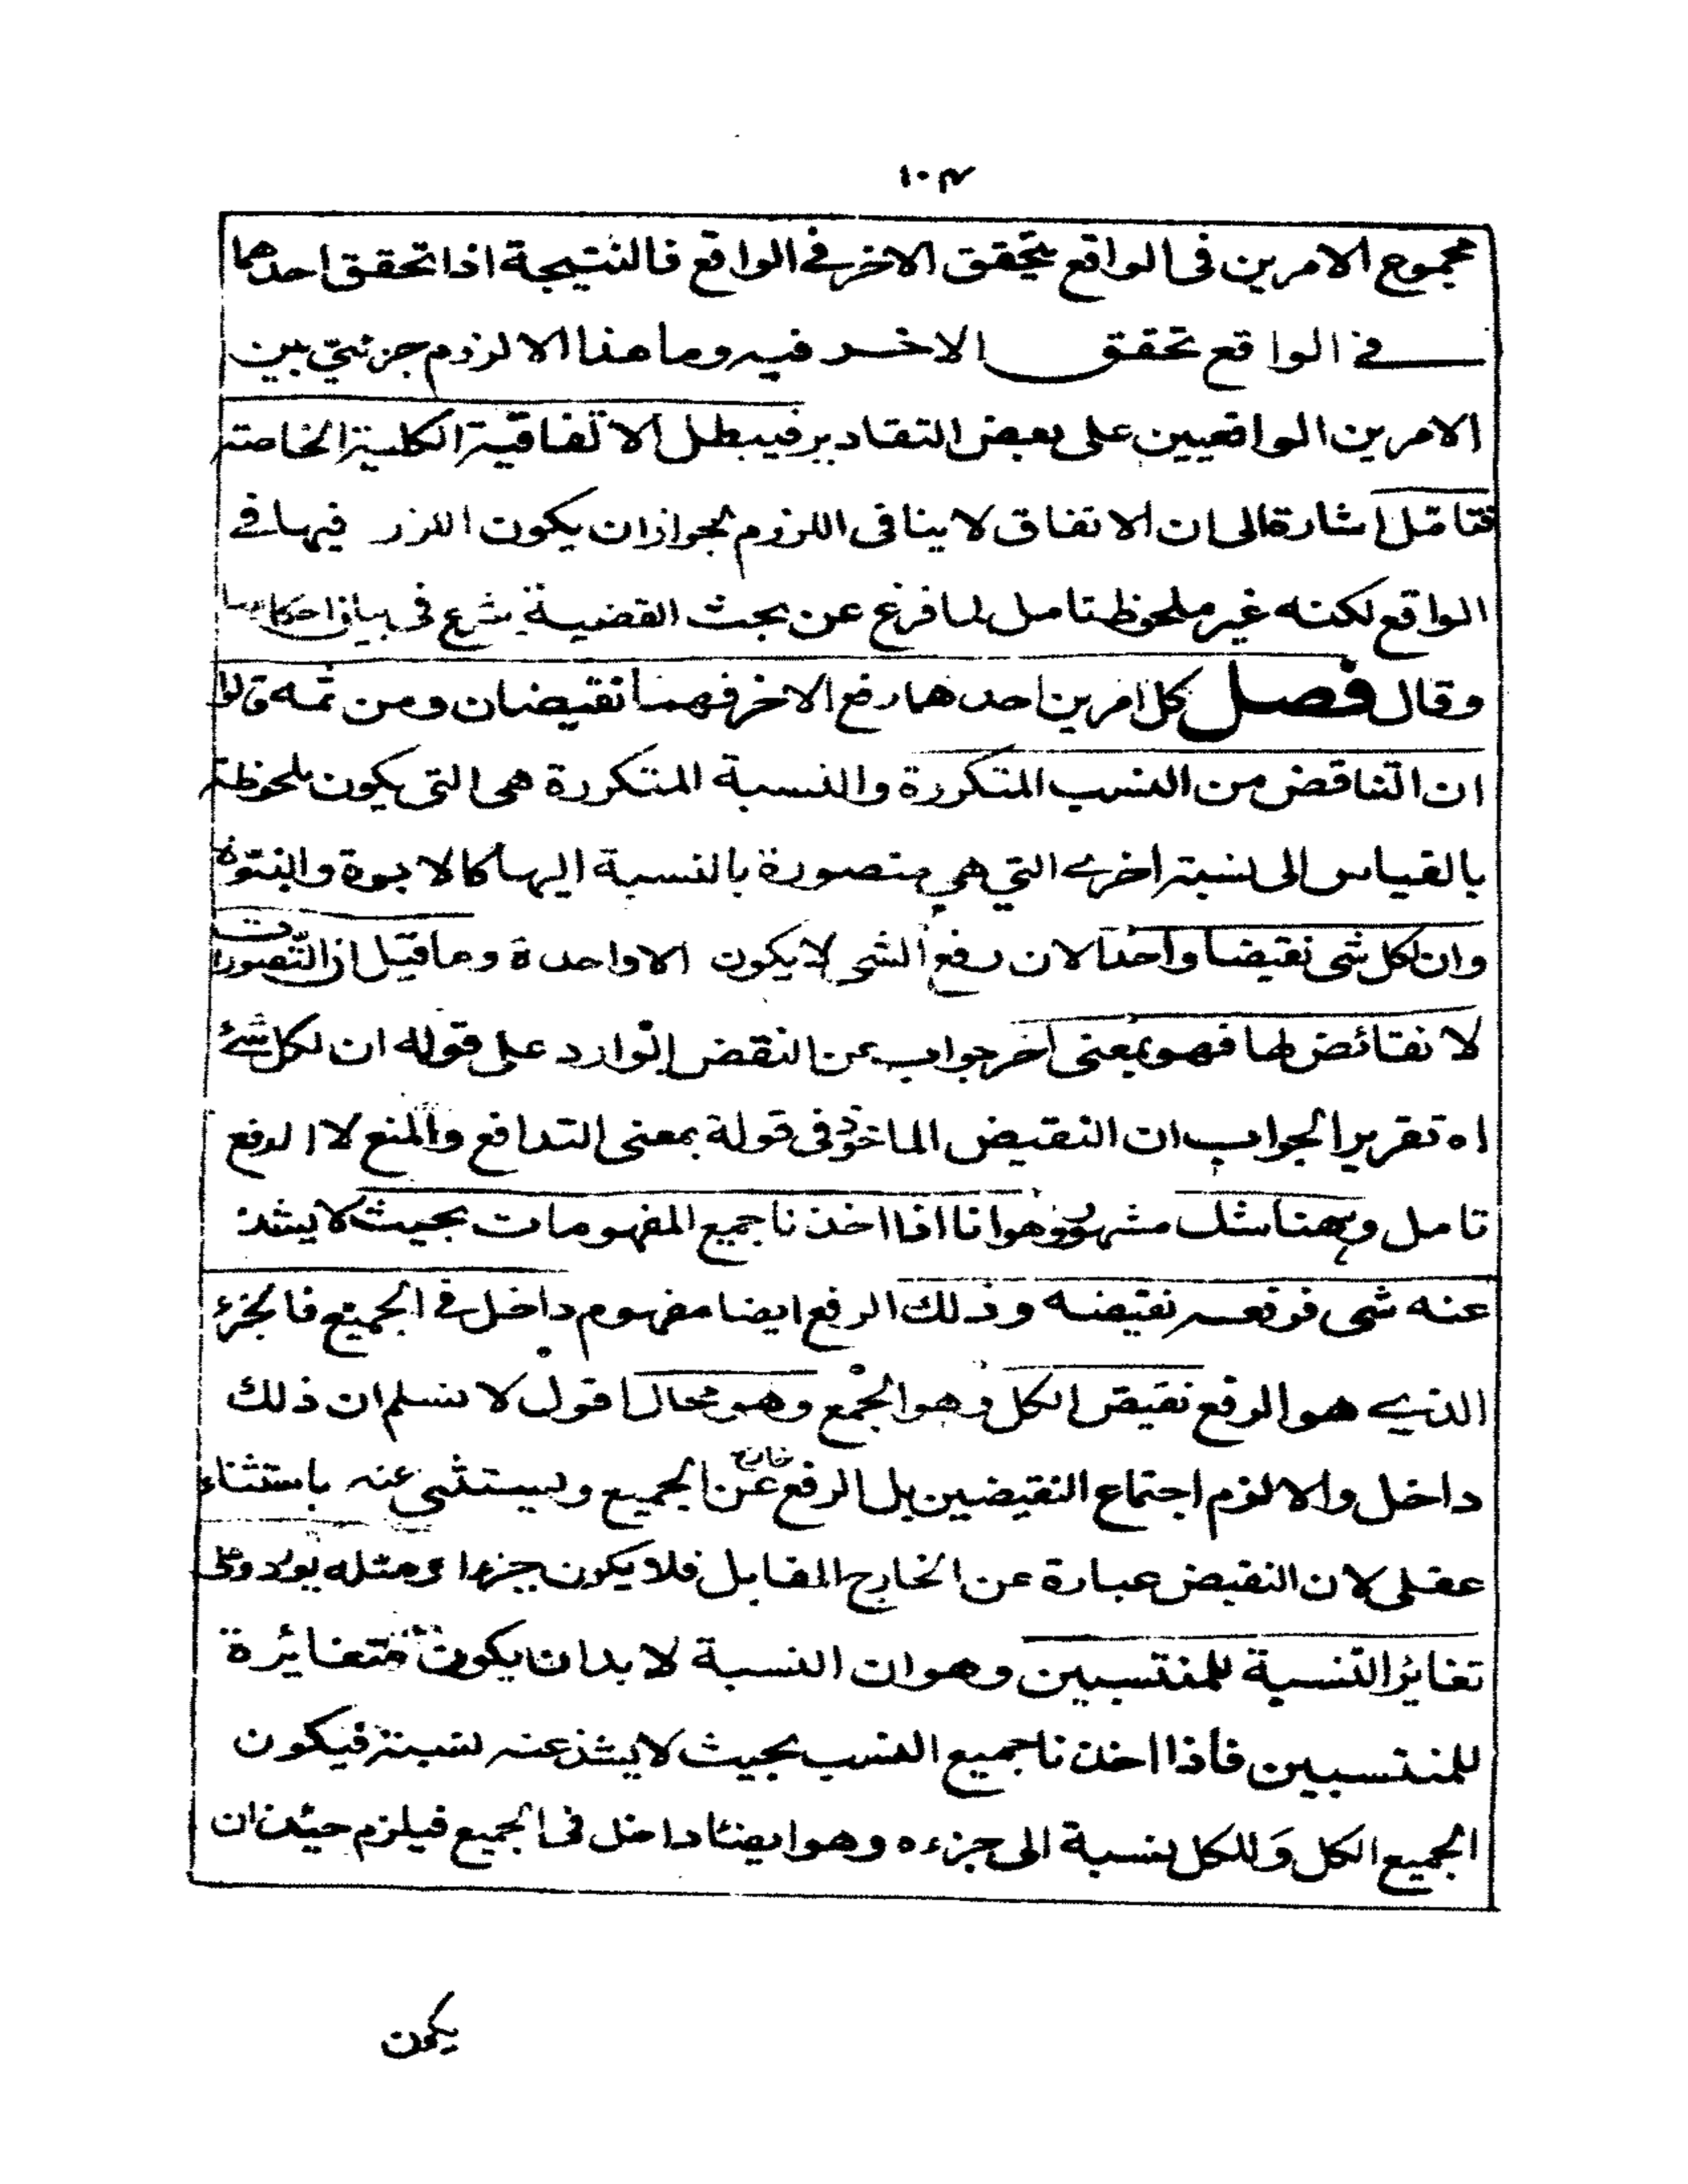 ١٠٤
مجموع الامرين فى الواقع يتحقق الاخر فے الواقع فالنتيجة اذا تحقق احدهما
فے الواقع تحقق الاخر فيه وما هذا الا لزوم جزئي بين
الامرين الواقعيين على بعض التقادير فيبطل الاتفاقية الكلية الخاصة
فتامل اشارة الى ان الاتفاق لا ينافى اللزوم لجواز ان يكون اللزوم فيها فے
الواقع لكنه غير ملحوظ تامل لما فرغ عن بحث القضية شرع فى بيان احكامها
وقال فصل كل امرين احدهما رفع الاخر فهما نقيضان ومن ثمه قالوا
ان التناقض من النسب المتكررة والنسبة المتكررة هى التى يكون ملحوظة
بالقياس الى نسبة اخرے التي هي متصورة بالنسبة اليها كالابوة والبنوة
وان لكل شى نقيضا واحدا لان رفع الشى لا يكون الا واحدة وما قيل ان التصورات
لا نقائض لها فهو بمعنى اخر جواب عن النقض الوارد على قوله ان لكل شئ
اه تقرير الجواب ان النقيض الماخوذ فى قولة بمعنى التدافع والمنع لا الرفع
تامل وههنا شك مشهور وهو انا اذا اخذنا جميع المفهومات بحيث لا يشذ
عنه شى فرفعه نقيضه وذلك الرفع ايضا مفهوم داخل فے الجميع فالجزء
الذے هو الرفع نقيض الكل وهو الجمع وهو محال اقول لا نسلم ان ذلك
داخل والا لزم اجتماع النقيضين بل الرفع خارج عن الجميع ويستثنى عنه باستثناء
عقلى لان النقيض عبارة عن الخارج المقابل فلا يكون جزءا ومثله يورد على
تغاير النسبة للمنتسبين وهو ان النسبة لا بد ان يكون متغايرة
للمنتسبين فاذا اخذنا جميع النسب بحيث لا يشذ عنه نسبة فيكون
الجميع الكل وللكل نسبة الى جزءه وهو ايضا داخل فى الجميع فيلزم حينئذ ان
يكون